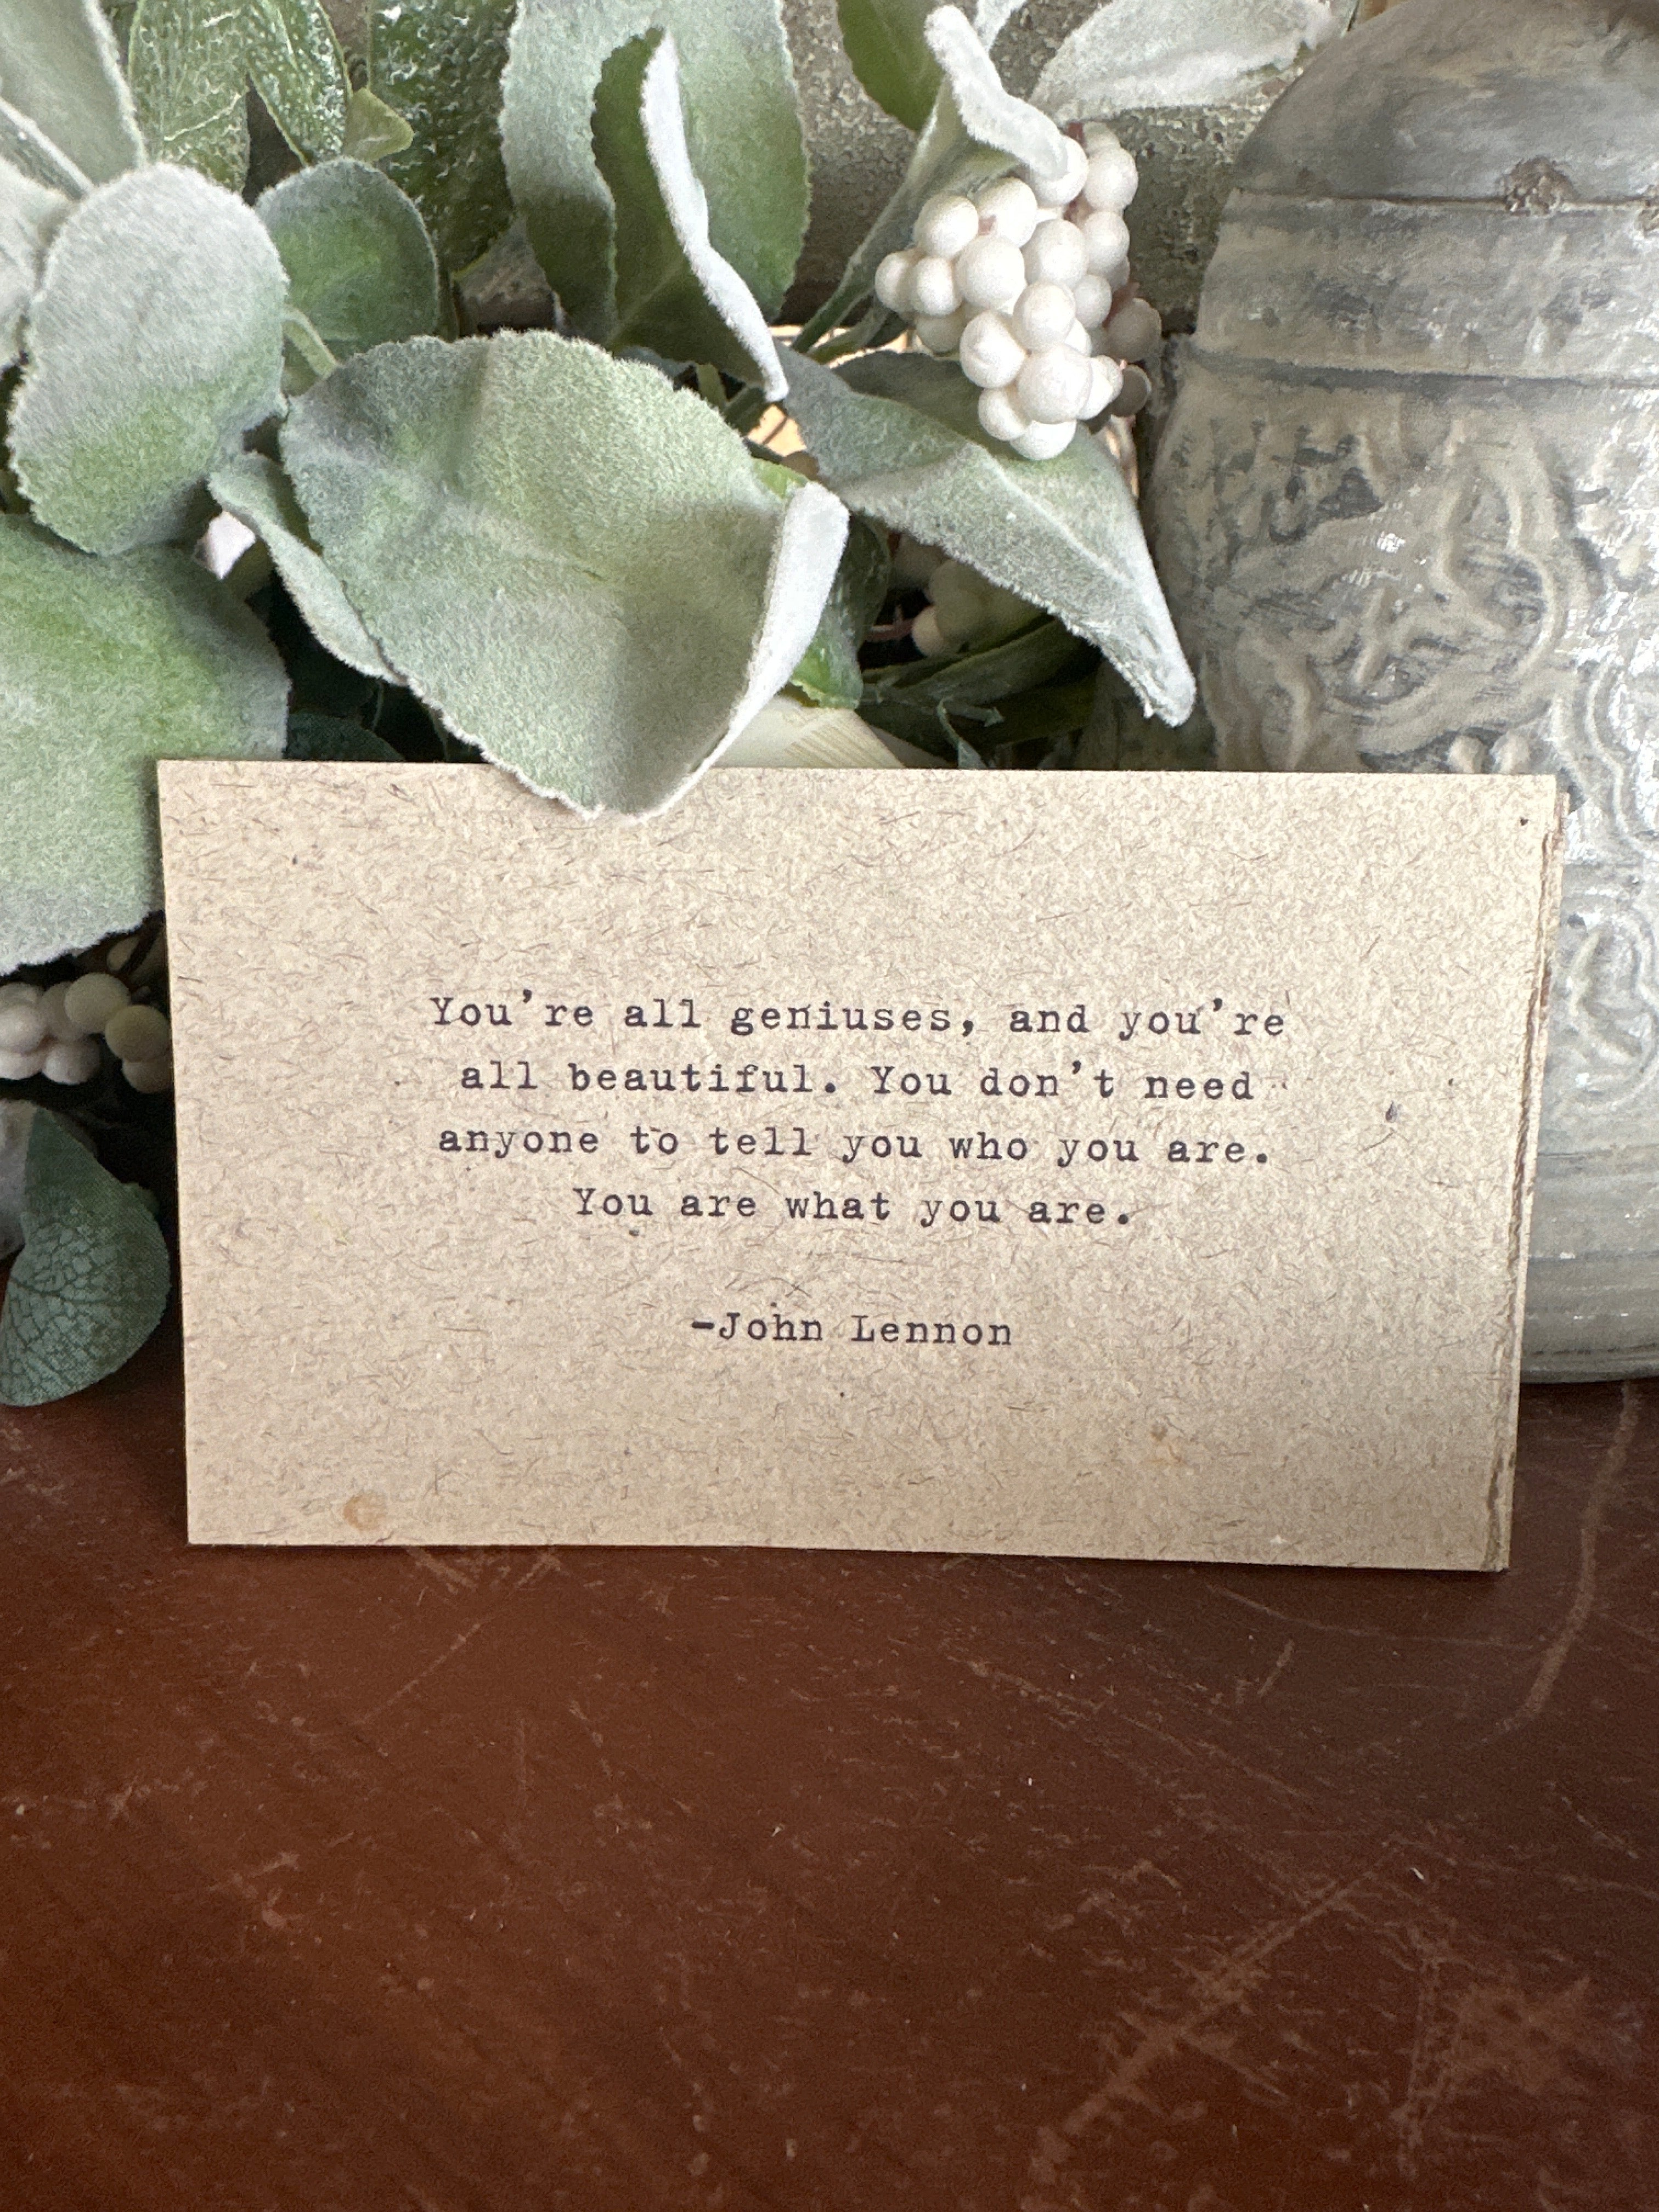 You're all geniuses, and you're
all beautiful. You don't need
anyone to tell you who you are.
You are what you are.
-John Lennon